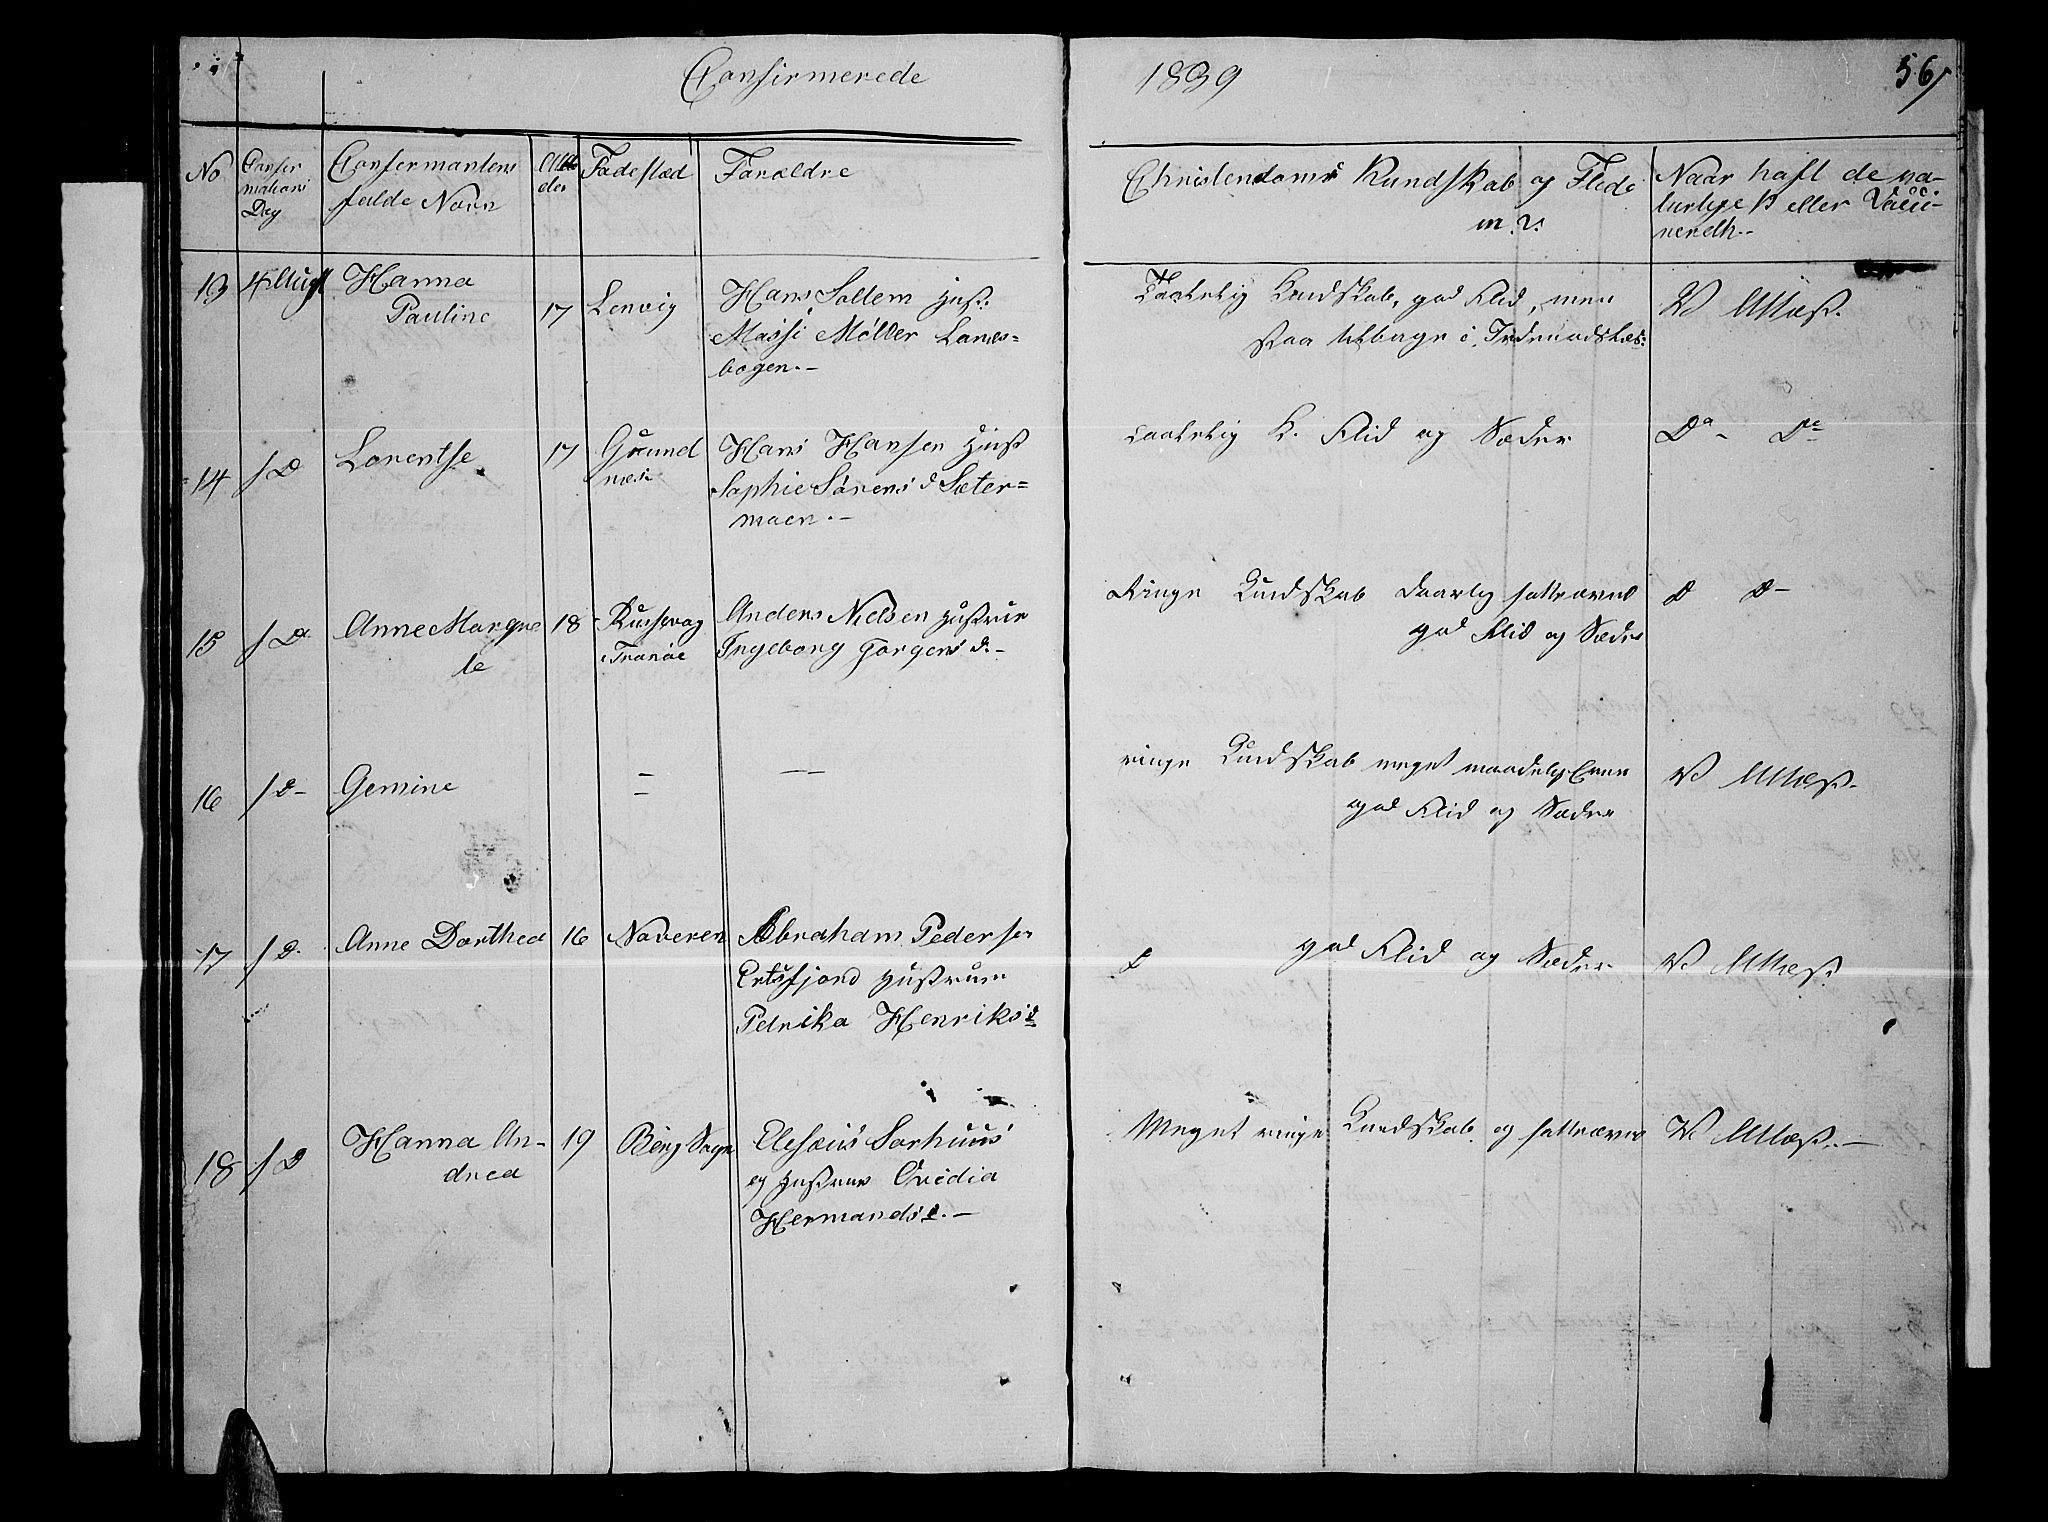 Confirmerede
1839
56
No
Confir
mations
Dag
Confirmantens
fulde Navn
Al
der
Fødested
Forældre
Christendoms Kundskab og Flid
m. v.
Naar haft de na-
turlige K eller Vacci-
nereth.-
13 4 Augst Hanna
Pauline
17 Lenvig
Hans Soltem Hust:
Massi Møller Lanes-
bogen.-
Taalelig Kundskab, god Flid, men
staa tilbage i
V Attest.
14 f D Lorentse
17 Grund
næs
Hans Hansen Hust
Sophie Sørens d Sæter-
moen.-
taalelig K. Flid og Sæder
Do- Do
15 f D Anne Margre
te
18 Russevog
i Tranøe
Anders Nielsen Hustrue
Ingeborg Jørgens d.-
Ringe Kundskab daarlig fatteævne
god Flid og Sæder
D D-
16 f D- Gemine
ringe Kundskab meget maadelig Evne
god Flid og Sæder
V Attest.
17 f D. Anne Dorthea
16 Naveren
Abraham Pedersen
Ertsfjord Hustrue
Petrika Henriks d
god Flid og Sæder
V. Attest
18 f D Hanna An-
drea
19 Berg Sogn
Elesæus Sørhuus
og Hustrue Ovidia
Hermands d.-
Meget ringe Kundskab og fatteævne
V Attest.-